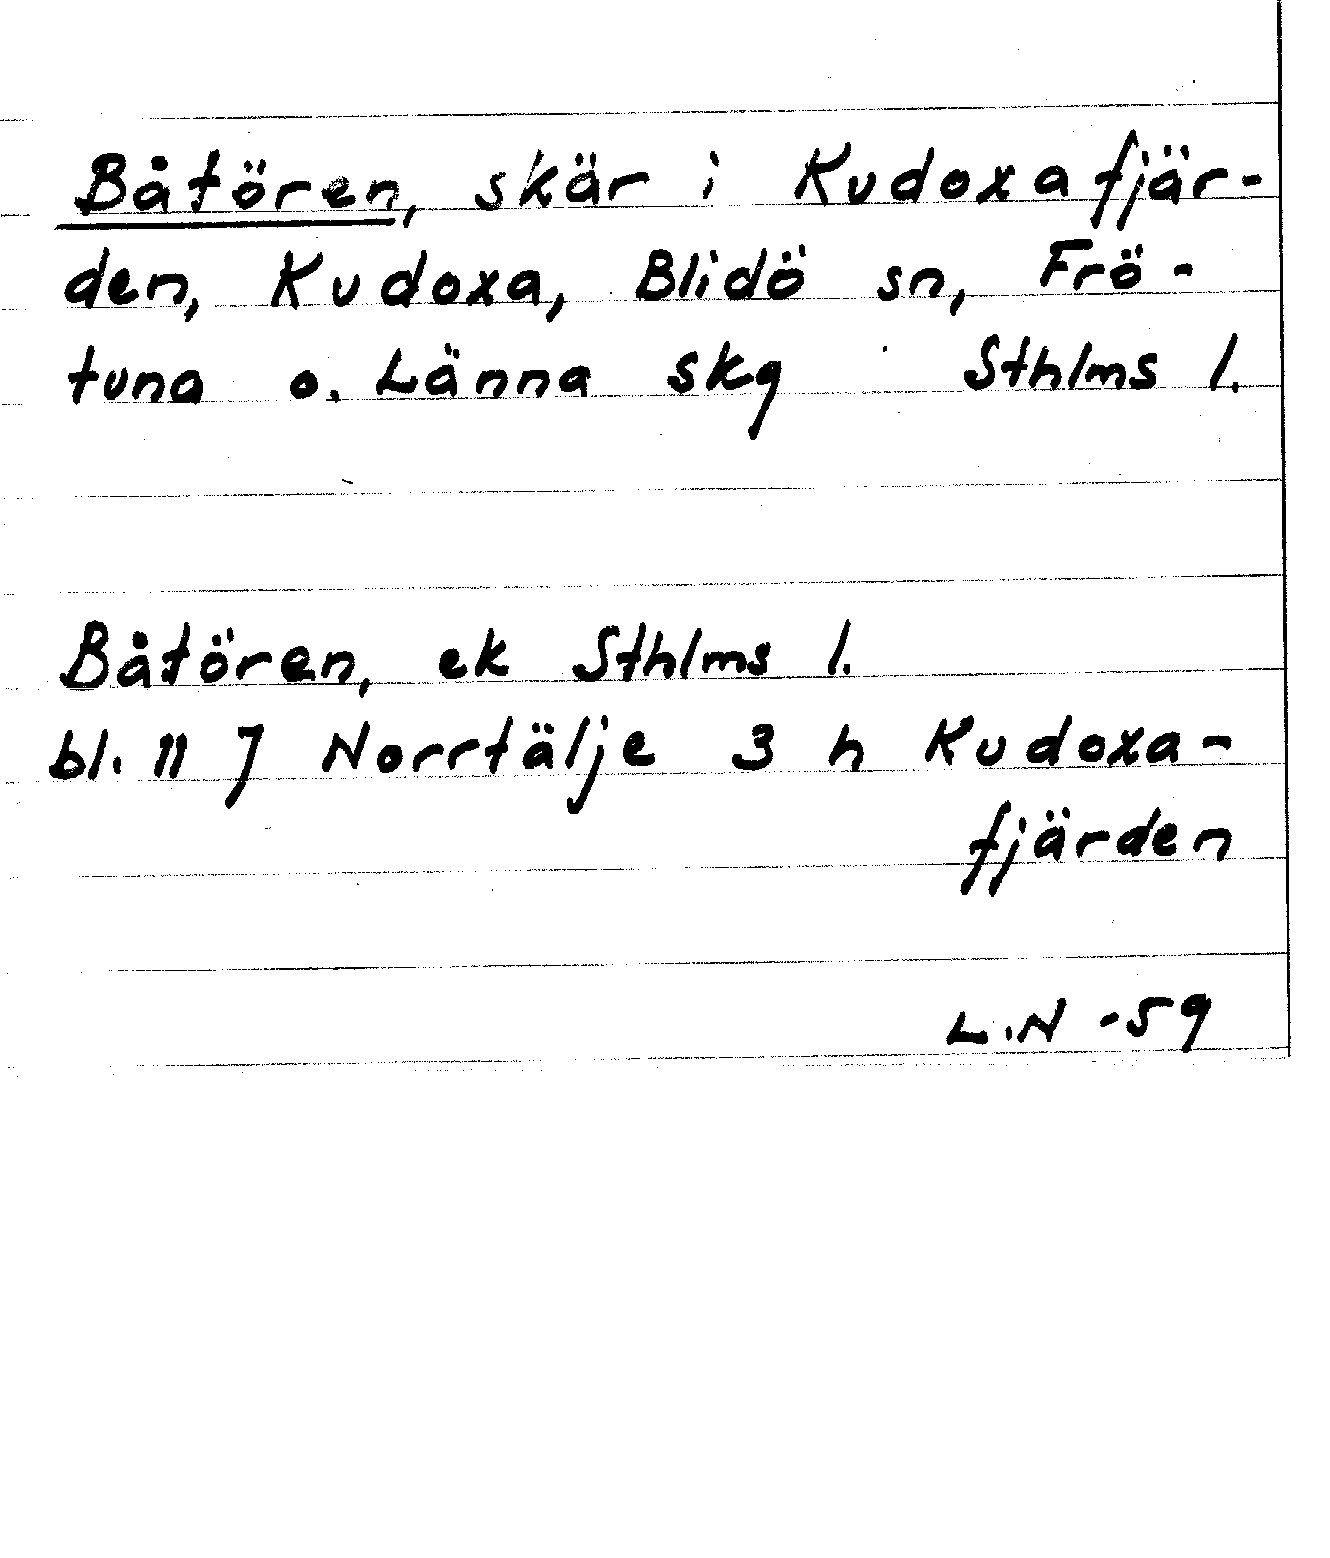 Båtören, skär i Kudoxafjär-
den, Kudoxa, Blidö sn, Frö-
tuna o. Länna skg Sthlms l.
Båtören, ek Sthlms l.
bl. 11 J Norrtälje 3 h Kudoxa-
fjärden
L.N -59